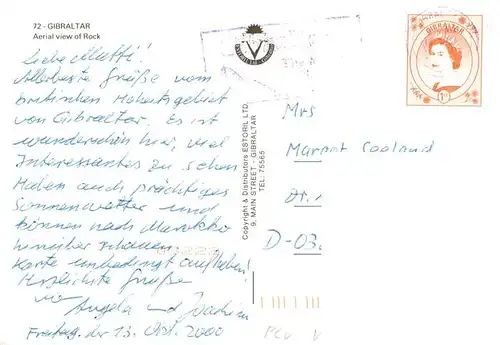 72 - GIBRALTAR
Aerial view of Rock
Liebe Mutti!
Allerbeste Grüße vom
britischen Hoheitsgebiet
von Gibraltar. Es ist
wunderschön hier, viel
Interessantes zu sehen
Haben auch prächtiges
Sonnenwetter und
können nach Marokko
hinüber schauen.
Karte unbedingt aufheben!
Herzlichste Grüße
von Angela und Joachim
Freitag, der 13. Okt. 2000
Copyright & Distributors ESTORIL LTD.
9, MAIN STREET - GIBRALTAR
TEL: 75565
GIBRALTAR
Mrs
D-03.